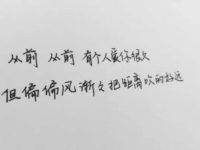 从前 从前 有个人爱你很久
但偏偏风渐渐把距离吹的好远